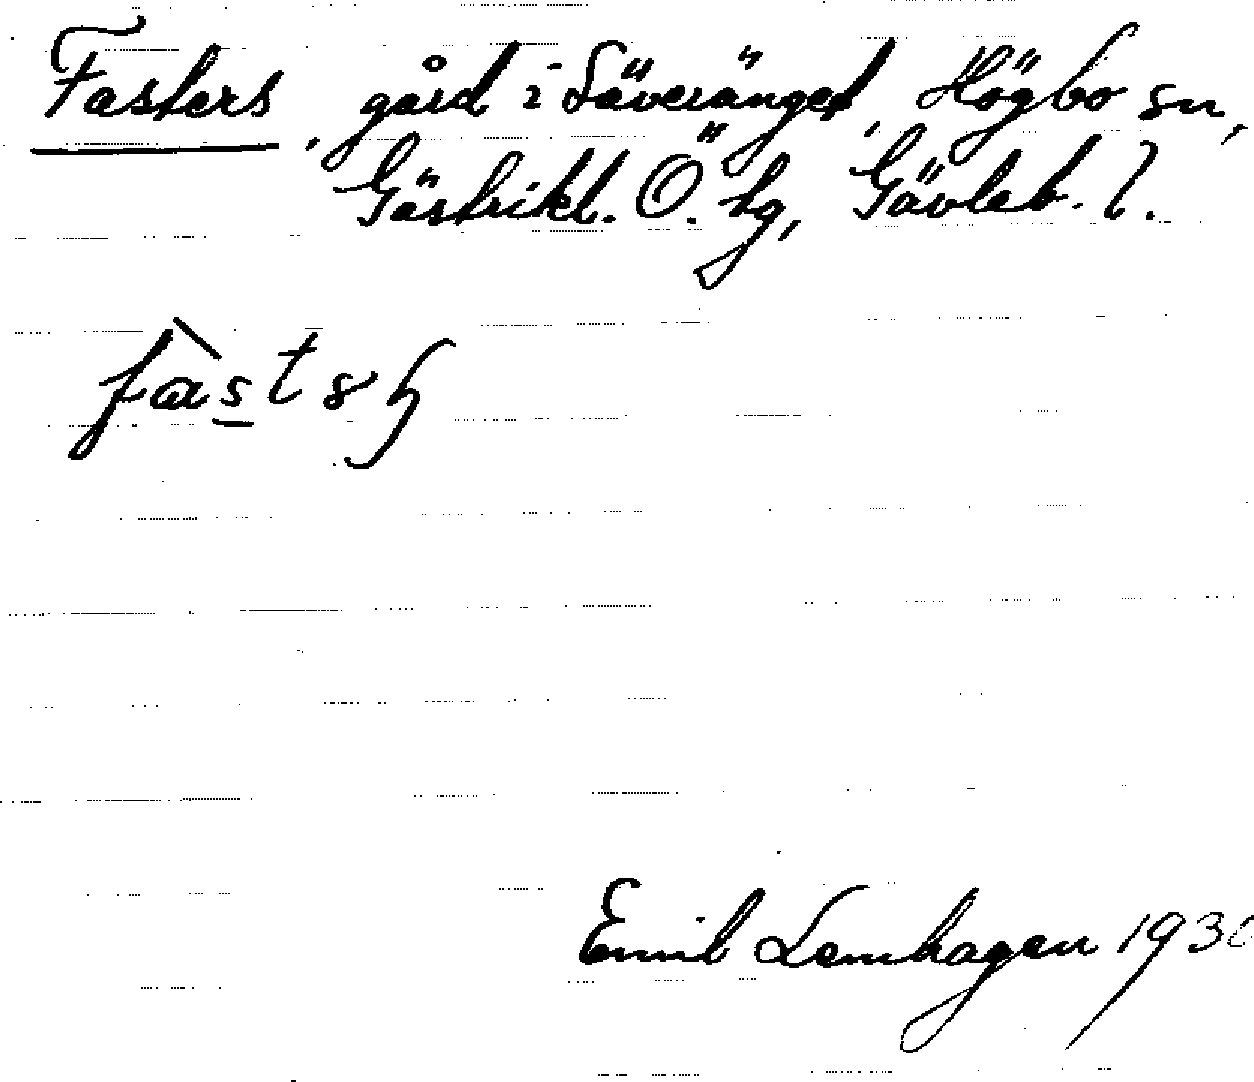 Fasters, gård i Säveränget, Högbo sn,
Gästrikl. Ö. hg, Gävleb. l.
Emil Lemhagen 193